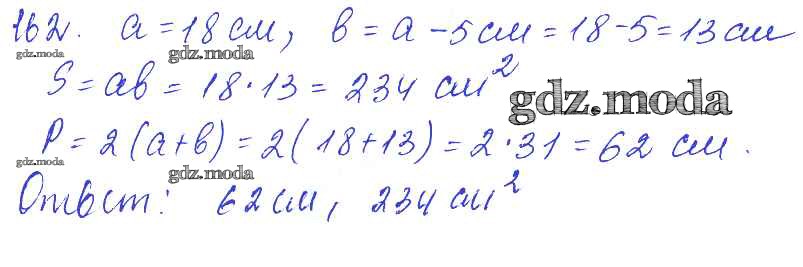 162. a = 18 см, b = a - 5 см = 18 - 5 = 13 см
gdz.moda gdz.moda
S = ab = 18 · 13 = 234 см²
gdz.moda
P = 2(a + b) = 2(18 + 13) = 2 · 31 = 62 см.
gdz.moda gdz.moda
Ответ: 62 см, 234 см²